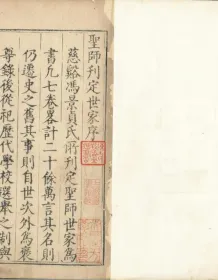 聖師刊定世家序
慈谿馮景貞氏所刊定聖師世家為
書凡七卷畧計二十餘萬言其名則
仍遷史之舊其事則自世次外為褒
尊錄後從祀歷代學校選舉之制與